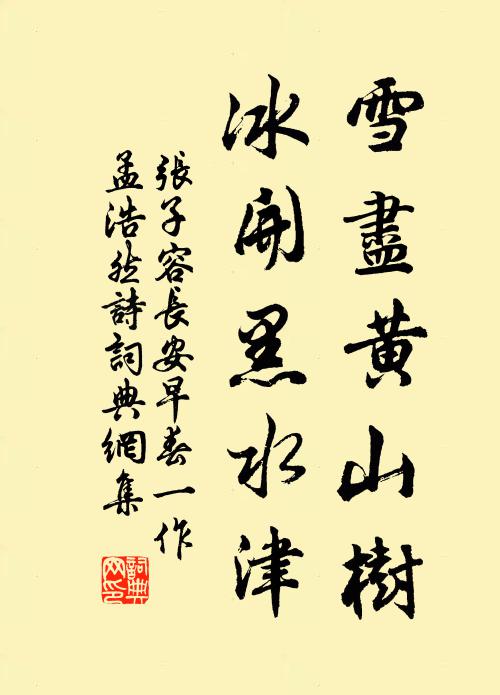 雪盡黄山樹
冰開黑水津
張子容長安早春一作
孟浩然詩詞典網集
詞典
网印